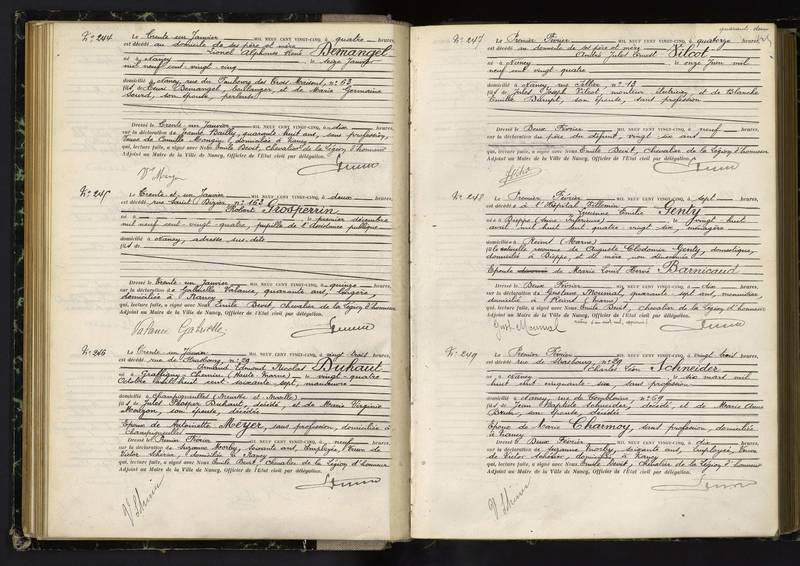 N° 244 Le Trente-un Janvier MIL NEUF CENT VINGT-CINQ, à quatre heures,
est décédé au domicile de ses père et mère
Lionel Alphonse René Demangel
né à Nancy le seize Janvier
mil neuf cent vingt cinq
domicilié à Nancy, rue du Faubourg des Trois Maisons, n° 63
fils de Demangel, boulanger, et de Marie Germaine
son épouse,
Dressé le Trente-un Janvier MIL NEUF CENT VINGT-CINQ, à dix heures,
sur la déclaration de Jeanne Bailly, quarante huit ans, sans profession,
Veuve de Camille Mangin, domiciliée à Nancy
qui, lecture faite, a signé avec Nous Emile Brvit, Chevalier de la Légion d'honneur
Adjoint au Maire de la Ville de Nancy, Officier de l'Etat civil par délégation.
N° 245 Le Trente et un Janvier MIL NEUF CENT VINGT-CINQ, à deux heures,
est décédé rue Saint Dizier, n° 163
Robert Grosperrin
né à le premier décembre
mil neuf cent vingt-quatre, pupille de l'Assistance publique
domicilié à Nancy, adresse sus-dite
fils de
Dressé le Trente-un Janvier MIL NEUF CENT VINGT-CINQ, à quinze heures,
sur la déclaration de Gabrielle Valance, quarante ans,
domiciliée à Nancy
qui, lecture faite, a signé avec Nous Emile Chevalier de la Légion d'honneur
Adjoint au Maire de la Ville de Nancy, Officier de l'Etat civil par délégation.
Valance Gabrielle
N° 246 Le Trente un Janvier MIL NEUF CENT VINGT-CINQ, à vingt trois heures,
est décédé rue de Strasbourg, n° 29
Armand Edmond Nicolas Duhaut
né à Graffigny-Chemin (Haute Marne) le vingt-quatre
Octobre mil huit cent soixante-sept, manœuvre
domicilié à Champigneulles (Meurthe et Moselle)
fils de Jules Prosper Duhaut, décédé, et de Marie Virginie
son épouse, décédée
Epoux de Antoinette Meyer, sans profession, domiciliée à
Champigneulles
Dressé le Premier Février MIL NEUF CENT VINGT-CINQ, à neuf heures,
sur la déclaration de Suzanne soixante ans, Employée, Veuve
de Victor domiciliée à Nancy
qui, lecture faite, a signé avec Nous Emile Chevalier de la Légion d'honneur
Adjoint au Maire de la Ville de Nancy, Officier de l'Etat civil par délégation.
quarante-deux
N° 247 Le Premier Février MIL NEUF CENT VINGT-CINQ, à quatorze heures,
est décédé au domicile de ses père et mère
André Jules Ernest Vilcot
né à Nancy le onze Juin mil
neuf cent vingt-quatre
domicilié à Nancy, rue n° 13
fils de Jules Joseph Vilcot, monteur électricien, et de Blanche
Emilie son épouse, sans profession
Dressé le Deux Février MIL NEUF CENT VINGT-CINQ, à neuf heures,
sur la déclaration du père du défunt, vingt six ans
qui, lecture faite, a signé avec Nous Emile Chevalier de la Légion d'honneur
Adjoint au Maire de la Ville de Nancy, Officier de l'Etat civil par délégation.
N° 248 Le Premier Février MIL NEUF CENT VINGT-CINQ, à sept heures,
est décédée à l'Hôpital Villemin
Emilie Genty
née à Dieppe (Seine Inférieure) le vingt-huit
avril mil huit cent quatre-vingt six, ménagère
domiciliée à Reims (Marne)
fille de Auguste Clodomir Genty, domestique,
domicilié à Dieppe, et de mère non dénommée
Epouse de Marie Louis Hervé Barnicaud
Dressé le Deux Février MIL NEUF CENT VINGT-CINQ, à dix heures,
sur la déclaration de Gustave quarante sept ans,
domicilié à Reims (Marne)
qui, lecture faite, a signé avec Nous Emile Chevalier de la Légion d'honneur
Adjoint au Maire de la Ville de Nancy, Officier de l'Etat civil par délégation.
N° 249 Le Premier Février MIL NEUF CENT VINGT-CINQ, à Vingt trois heures,
est décédé rue de Strasbourg, n° 29
Charles Léon Schneider
né à Nancy le dix mars mil
huit cent cinquante-six, sans profession
domicilié à Nancy, rue de n° 69
fils de Jean Baptiste Schneider, décédé, et de Marie Anne
son épouse, décédée
Epoux de Marie Charmoy, sans profession, domiciliée
à Nancy
Dressé le Deux Février MIL NEUF CENT VINGT-CINQ, à dix heures,
sur la déclaration de Suzanne soixante ans, employée, Veuve
de Victor domiciliée à Nancy
qui, lecture faite, a signé avec Nous Emile Chevalier de la Légion d'honneur
Adjoint au Maire de la Ville de Nancy, Officier de l'Etat civil par délégation.